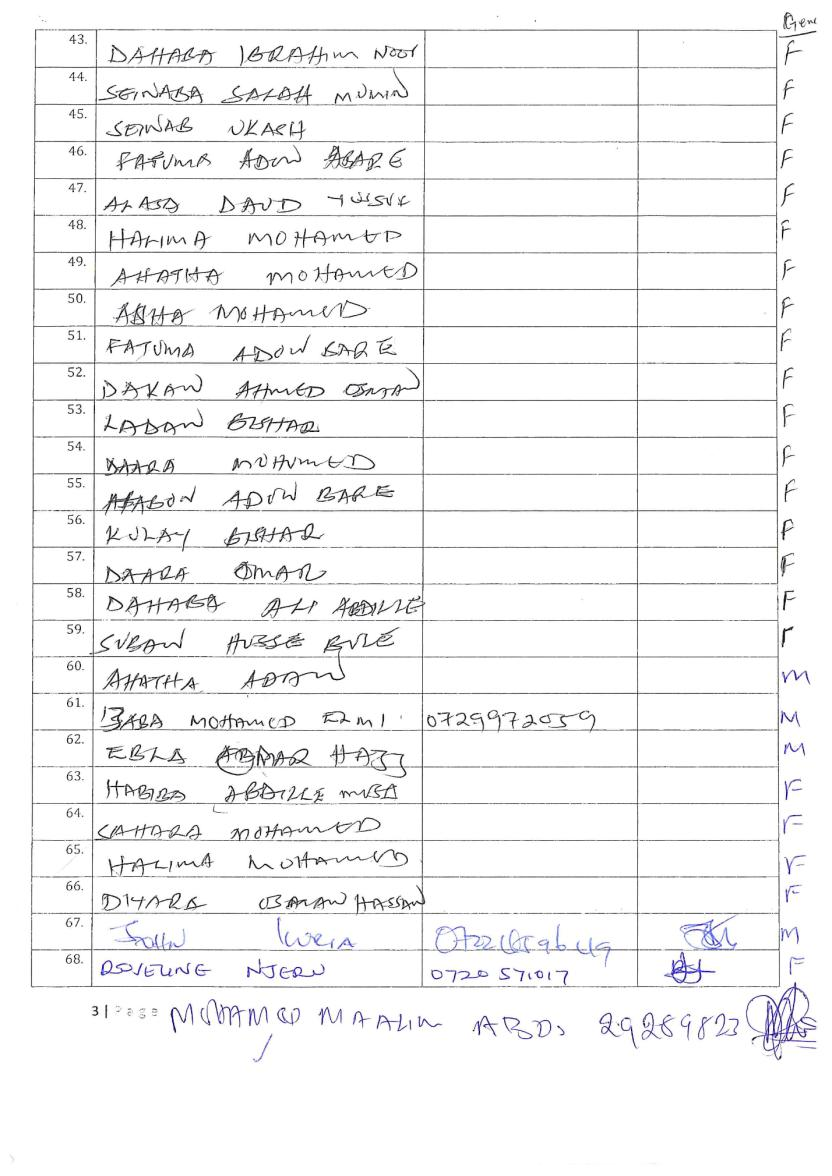 Gen
43. DAHABA IBRAHIM NOOR F
44. SEINABA SALAH MUMIN F
45. SEINAB UKASH F
46. FATUMA ADOW ABARE F
47. DAUD F
48. HALIMA MOHAMED F
49. AHATHA MOHAMED F
50. ASHA MOHAMED F
51. FATUMA ADOW BARE F
52. DAKAN AHMED OSMAN F
53. LADAN BISHAR F
54. DAARA MOHUMED F
55. ADOW BARE F
56. KULAY BISHAR F
57. DAARA OMAR F
58. DAHABA ALI ABDILLE F
59. SUBAN HUSSE BULE F
60. AHATHA ADAN M
61. BABA MOHAMED ELMI 0729972059 M
62. EBLA M
63. HABIBA ABDILLE MUSA F
64. SAHARA MOHAMED F
65. HALIMA MOHAMED F
66. HASSAN F
67. JOHN KURIA M
68. ROSELINE NJERU 0720 571017 F
3 | Page MOHAMED MAALIM ABDI 29289823